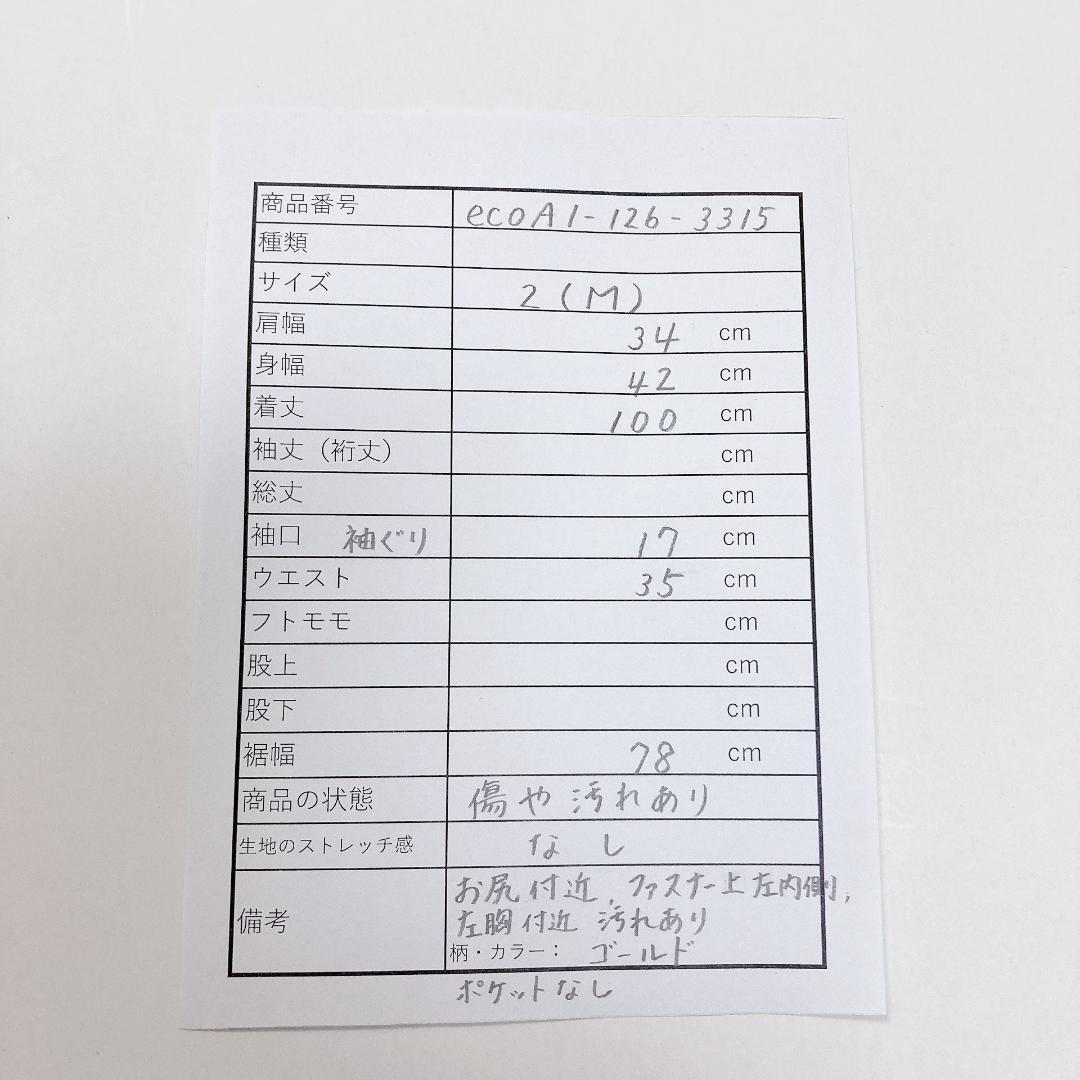 商品番号 ecoA1-126-3315
種類
サイズ 2(M)
肩幅 34 cm
身幅 42 cm
着丈 100 cm
袖丈（裄丈） cm
総丈 cm
袖口 袖ぐり 17 cm
ウエスト 35 cm
フトモモ cm
股上 cm
股下 cm
裾幅 78 cm
商品の状態 傷や汚れあり
生地のストレッチ感 なし
備考 お尻付近、ファスナー上左内側、
左胸付近 汚れあり
柄・カラー： ゴールド
ポケットなし